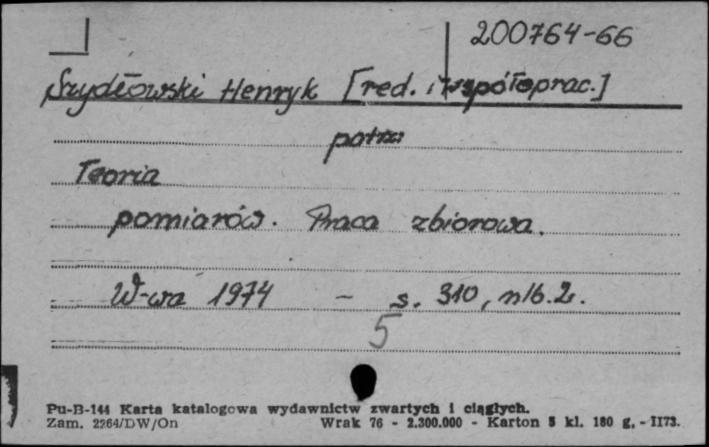 200764-66
Szydłowski Henryk [red. i współoprac.]
patrz
Teoria
pomiarów. Praca zbiorowa.
W-wa 1974 - s. 310, nlb. 2.
5
Pu-B-144 Karta katalogowa wydawnictw zwartych i ciągłych.
Zam. 2264/DW/On Wrak 76 - 2.300.000 - Karton 5 kl. 180 g. - II73.